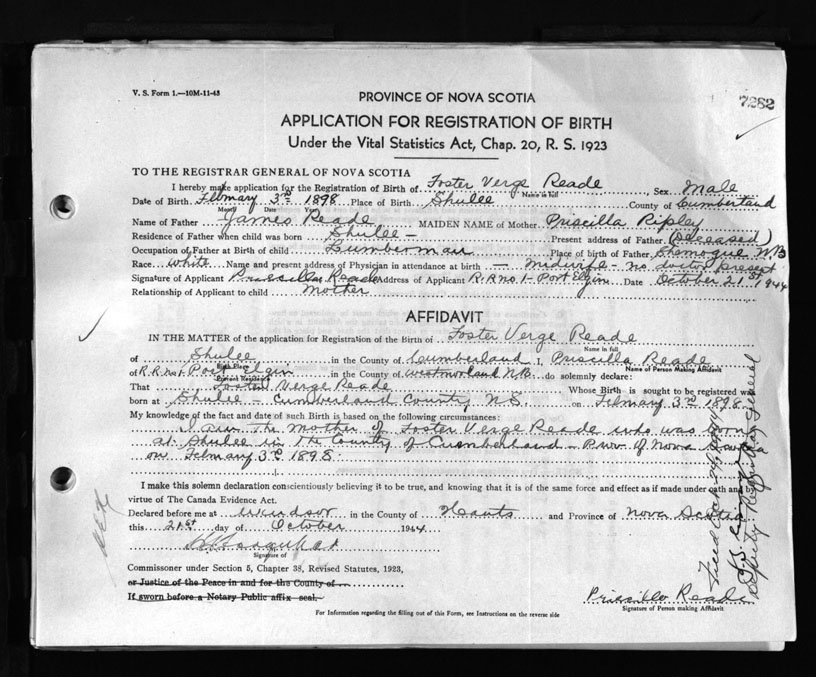 V. S. Form 1.—10M-11-43
PROVINCE OF NOVA SCOTIA
7282
APPLICATION FOR REGISTRATION OF BIRTH
Under the Vital Statistics Act, Chap. 20, R. S. 1923
TO THE REGISTRAR GENERAL OF NOVA SCOTIA
I hereby make application for the Registration of Birth of Foster Verge Reade, Sex Male
Name in full
Date of Birth February 3rd 1898 Place of Birth Shulee County of Cumberland
Month Date Year
Name of Father James Reade MAIDEN NAME of Mother Priscilla Ripley
Residence of Father when child was born Shulee — Present address of Father (Deceased)
Occupation of Father at Birth of child Lumberman Place of birth of Father Shemogue N.B
Race White Name and present address of Physician in attendance at birth — midwife - no doctor present
Signature of Applicant Priscilla Reade Address of Applicant R.R no 1 - Port Elgin Date October 21st 1944
Relationship of Applicant to child mother
AFFIDAVIT
IN THE MATTER of the application for Registration of the Birth of Foster Verge Reade
Name in full
of Shulee in the County of Cumberland I, Priscilla Reade
Birth Place
Name of Person Making Affidavit
of R.R. no 1. Port Elgin in the County of Westmorland N.B. do solemnly declare:
Present Residence
That Foster Verge Reade Whose Birth is sought to be registered was
born at Shulee - Cumberland County N.S. on February 3rd 1898
My knowledge of the fact and date of such Birth is based on the following circumstances:
I am the mother of Foster Verge Reade who was born
at Shulee in the County of Cumberland - Prov. of Nova Scotia
on February 3rd 1898.
I make this solemn declaration conscientiously believing it to be true, and knowing that it is of the same force and effect as if made under oath and by
virtue of The Canada Evidence Act.
Declared before me at Windsor in the County of Hants and Province of Nova Scotia
this 21st day of October 1944
Signature of
Commissioner under Section 5, Chapter 38, Revised Statutes, 1923,
or Justice of the Peace in and for the County of
If sworn before a Notary Public affix seal.
Priscilla Reade
Signature of Person making Affidavit
For Information regarding the filling out of this Form, see Instructions on the reverse side
Deputy Registrar General